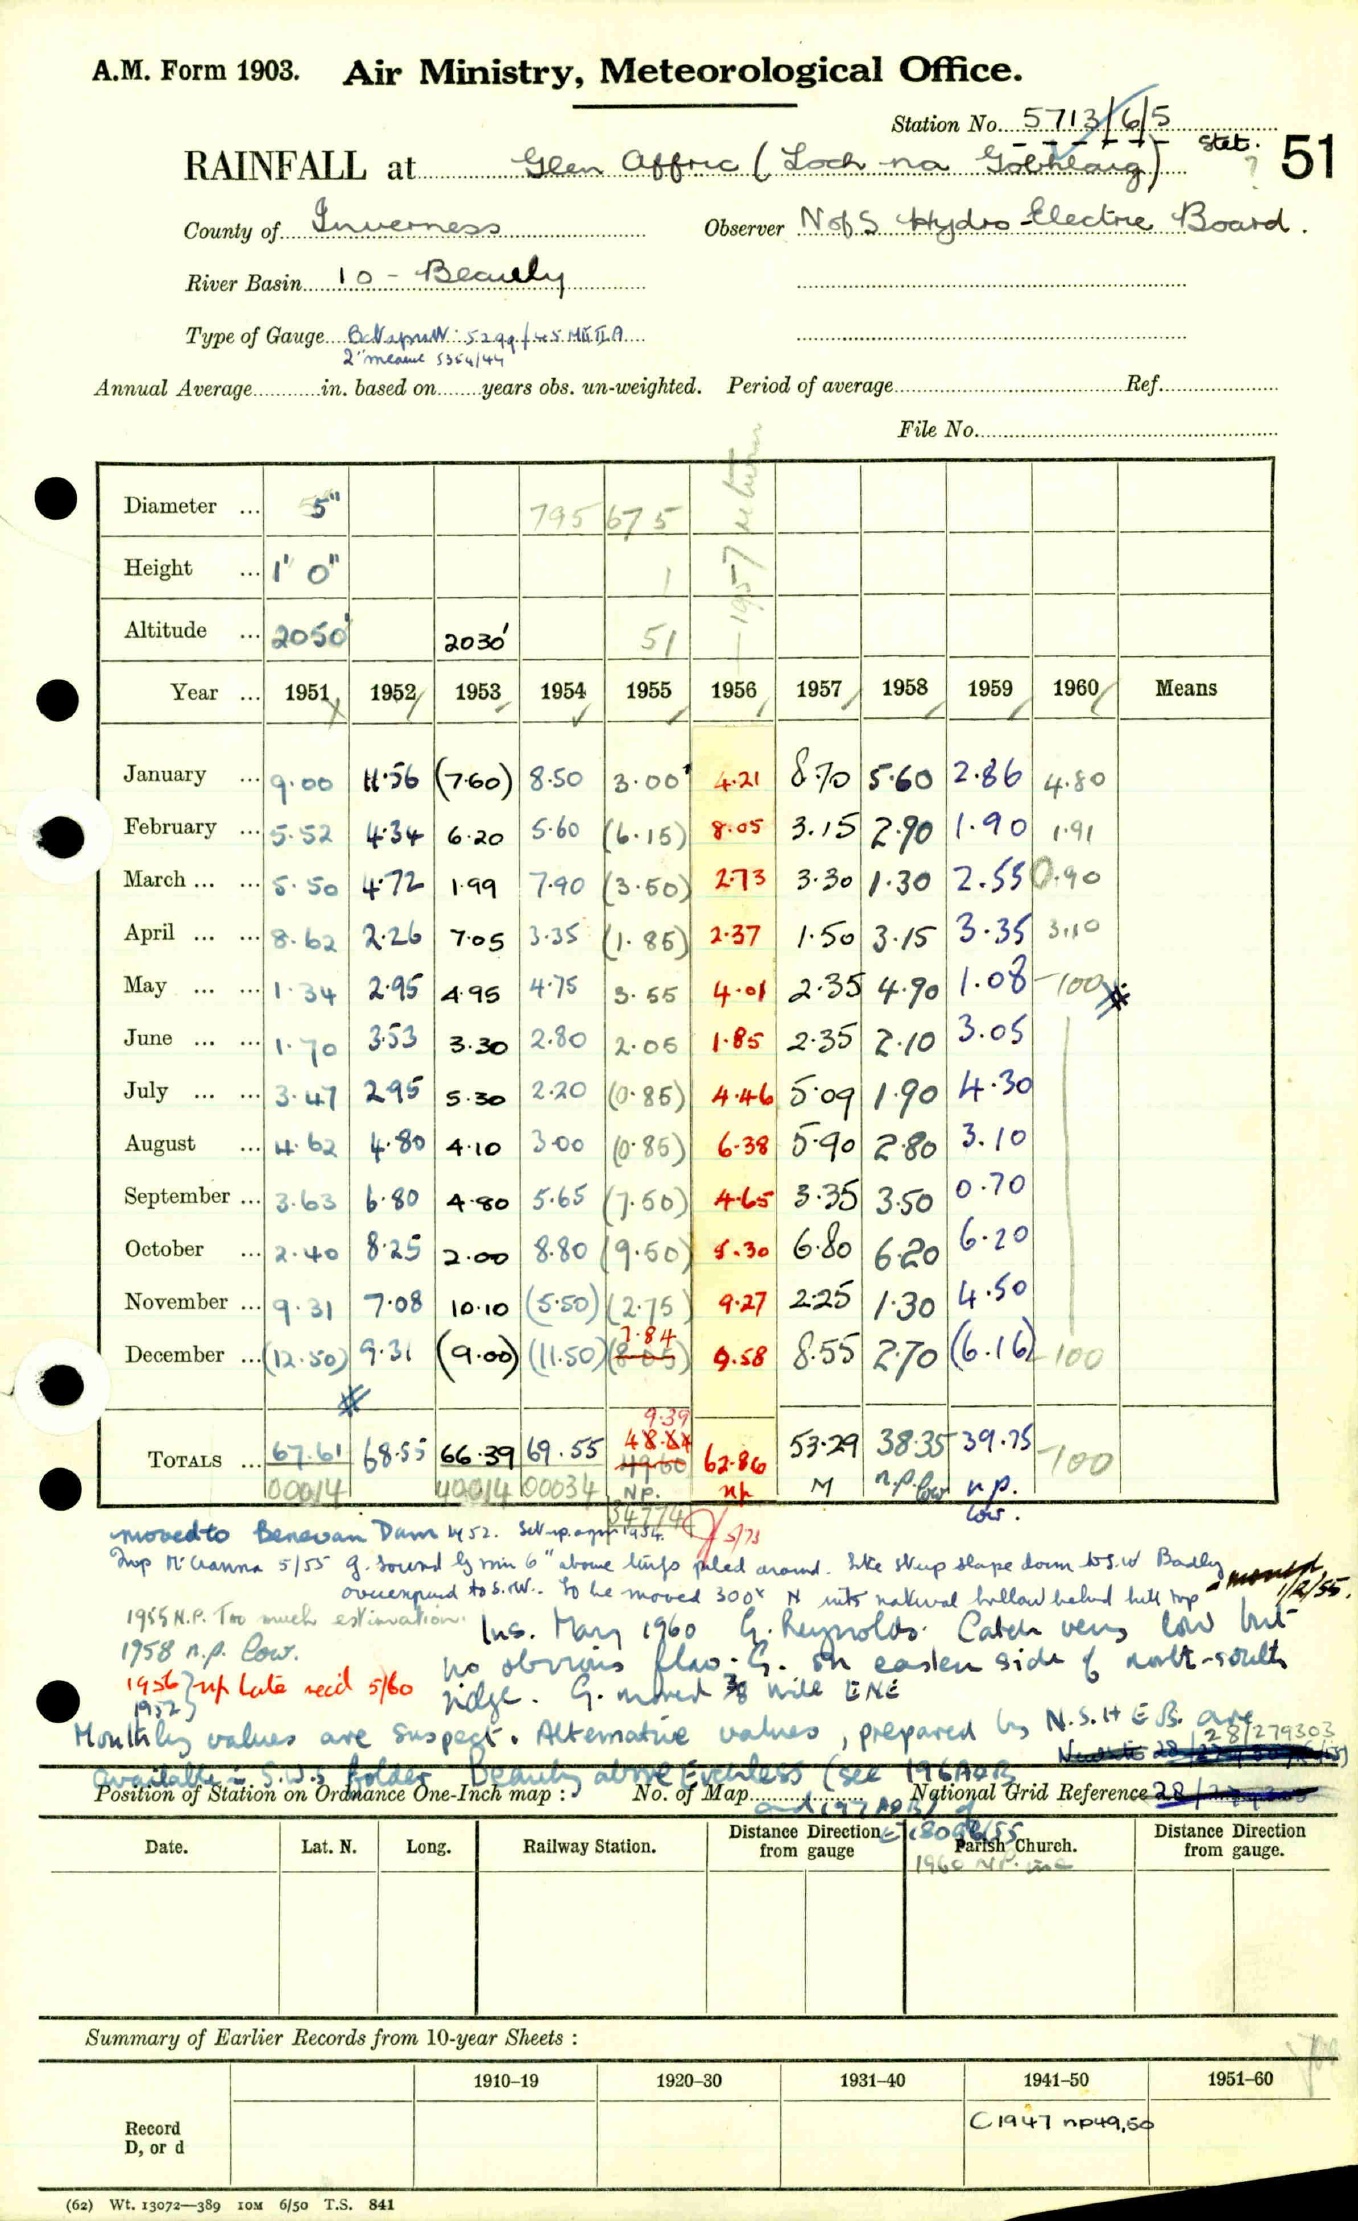 A.M. Form 1903. Air Ministry, Meteorological Office.
Station No. 5713/6/5
Stet. ? 51
RAINFALL at Glen Affric (Loch na Gobhlaig)
County of Inverness Observer N of S Hydro-Electric Board.
River Basin 10 - Beauly
Type of Gauge 5299/45 MK II A
2" measure 5354/44
Annual Average in. based on years obs. un-weighted. Period of average Ref.
File No.
Diameter ... 5" 795 675
Height ... 1' 0" 1
Altitude ... 2050' 2030' 51
— 1957 return
Year ... 1951 1952 1953 1954 1955 1956 1957 1958 1959 1960 Means
January ... 9.00 11.56 (7.60) 8.50 3.00 4.21 8.70 5.60 2.86 4.80
February ... 5.52 4.34 6.20 5.60 (6.15) 8.05 3.15 2.90 1.90 1.91
March ... ... 5.50 4.72 1.99 7.90 (3.50) 2.73 3.30 1.30 2.55 0.90
April ... ... 8.62 2.26 7.05 3.35 (1.85) 2.37 1.50 3.15 3.35 3.10
May ... ... 1.34 2.95 4.95 4.75 3.55 4.01 2.35 4.90 1.08 -100
June ... ... 1.70 3.53 3.30 2.80 2.05 1.85 2.35 2.10 3.05
July ... ... 3.47 2.95 5.30 2.20 (0.85) 4.46 5.09 1.90 4.30
August ... 4.62 4.80 4.10 3.00 (0.85) 6.38 5.90 2.80 3.10
September ... 3.63 6.80 4.80 5.65 (7.50) 4.65 3.35 3.50 0.70
October ... 2.40 8.25 2.00 8.80 (9.50) 5.30 6.80 6.20 6.20
November ... 9.31 7.08 10.10 (5.50) (2.75) 9.27 2.25 1.30 4.50
7.84
December ... (12.50) 9.31 (9.00) (11.50) (8.05) 9.58 8.55 2.70 (6.16) -100
9.39
48.84
TOTALS ... 67.61 68.55 66.39 69.55 49.60 62.86 53.29 38.35 39.75 -100
00014 40014 00034 N.P. np M n.p. low n.p. low.
34774 5/73
moved to Benevan Dam 4/52. Set up again 1954.
Insp McCranna 5/55 g. sound by rim 6" above turfs piled around. Site steep slope down to S.W Badly
overexposed to S.W. To be moved 300x N into natural hollow behind hill top - moved 1/2/55.
1955 N.P. Too much estimation.
Ins. May 1960 G. Reynolds. Catch very low but
1958 n.p. low.
no obvious flaw. G. on eastern side of north-south
1956 } np late recd 5/60
1952 }
ridge. G. moved 3/8 mile ENE
Monthly values are suspect. Alternative values, prepared by N.S.H.E.B. are
28/279303
available in S.W.S folder Beauly above Erchless (see 196A or B
and 197A or B) of
Position of Station on Ordnance One-Inch map : No. of Map National Grid Reference 28/
Date. Lat. N. Long. Railway Station. Distance from gauge Direction Parish Church. Distance Direction from gauge.
1960 N.P. inc
Summary of Earlier Records from 10-year Sheets :
1910–19 1920–30 1931–40 1941–50 1951–60
Record D, or d
C1947 np49,50
(62) Wt. 13072—389 10M 6/50 T.S. 841